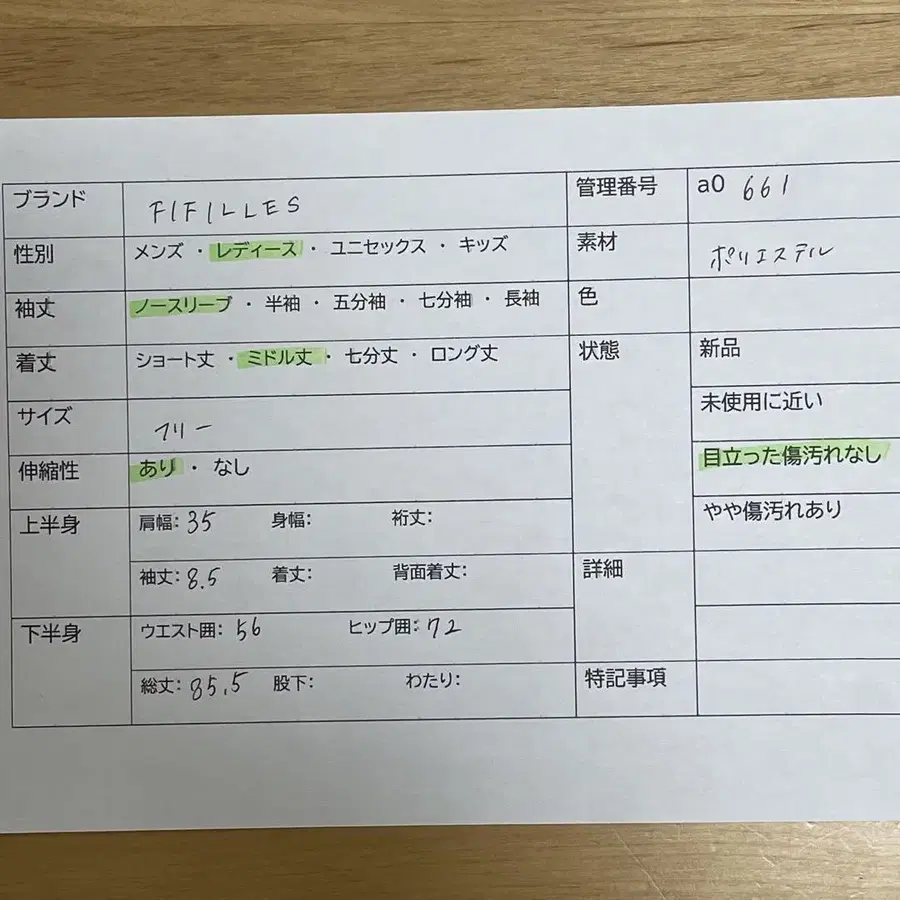 ブランド FIFILLES 管理番号 a0 661
性別 メンズ ・ レディース ・ ユニセックス ・ キッズ 素材 ポリエステル
袖丈 ノースリーブ ・ 半袖 ・ 五分袖 ・ 七分袖 ・ 長袖 色
着丈 ショート丈 ・ ミドル丈 ・ 七分丈 ・ ロング丈 状態 新品
サイズ フリー 未使用に近い
伸縮性 あり ・ なし 目立った傷汚れなし
上半身 肩幅: 35 身幅: 裄丈: やや傷汚れあり
袖丈: 8.5 着丈: 背面着丈: 詳細
下半身 ウエスト囲: 56 ヒップ囲: 72
総丈: 85.5 股下: わたり: 特記事項